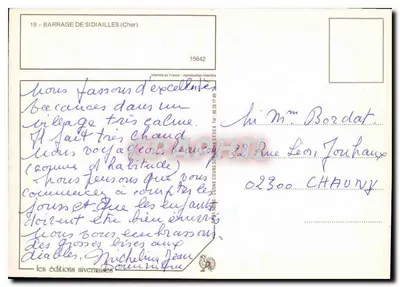 18 - BARRAGE DE SIDIAILLES (Cher)
15642
Nous passons d'excellentes
vacances dans un
village très calme.
Il fait très chaud
nous voyageons beaucoup
(comme d'habitude)
nous pensons que vous
commencez à compter les
jours et que les enfants
doivent être bien énervés
nous vous embrassons
des grosses bises aux
diables. Micheline Jean
Dominique
les éditions nivernaises
Mr Mm Bordat
2 Rue Léon Jouhaux
02300 CHAUNY